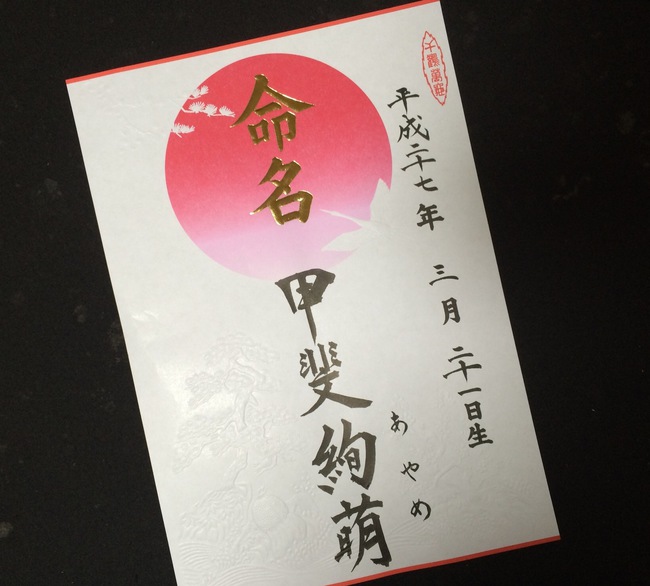 平成二十七年 三月 二十一日生
命名
甲斐絢萌
あやめ